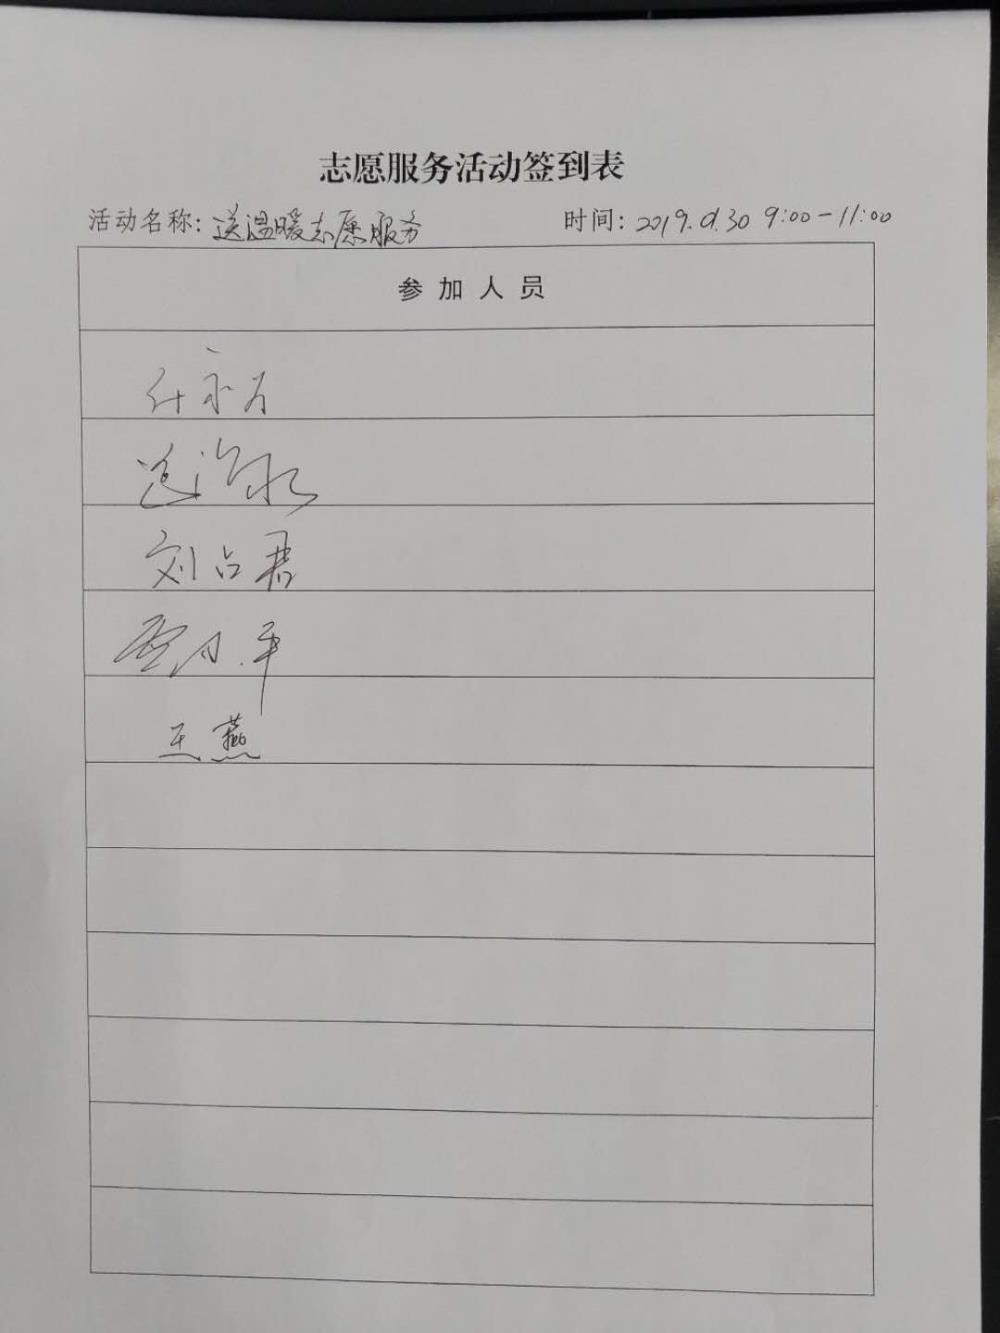 志愿服务活动签到表
活动名称：送温暖志愿服务
时间：2019.9.30 9:00-11:00
参加人员
刘占君
王燕